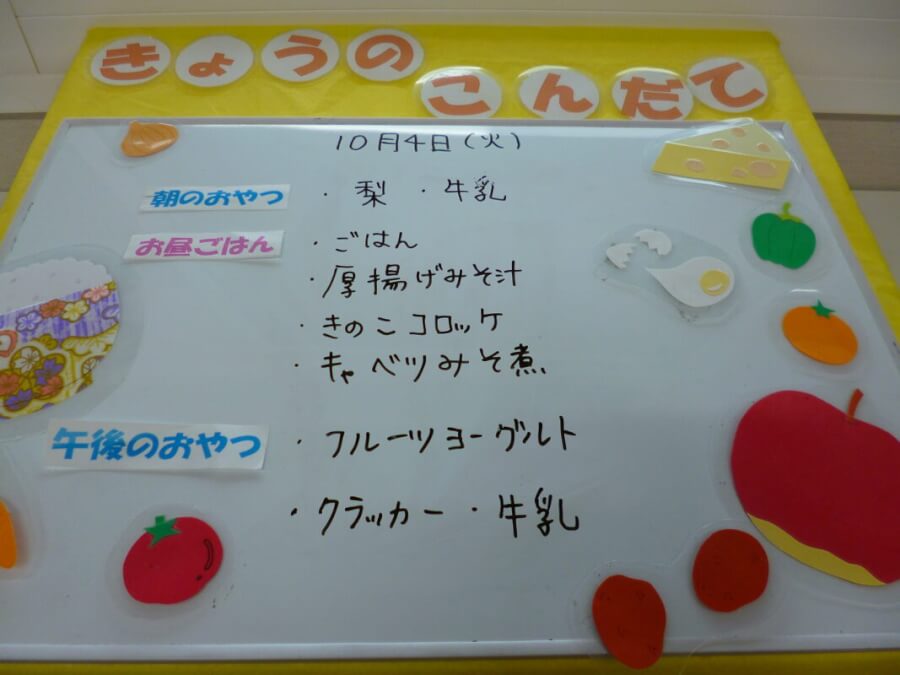 きょうの こんだて
10月4日(火)
朝のおやつ ・梨 ・牛乳
お昼ごはん ・ごはん
・厚揚げみそ汁
・きのこコロッケ
・キャベツみそ煮
午後のおやつ ・フルーツヨーグルト
・クラッカー ・牛乳